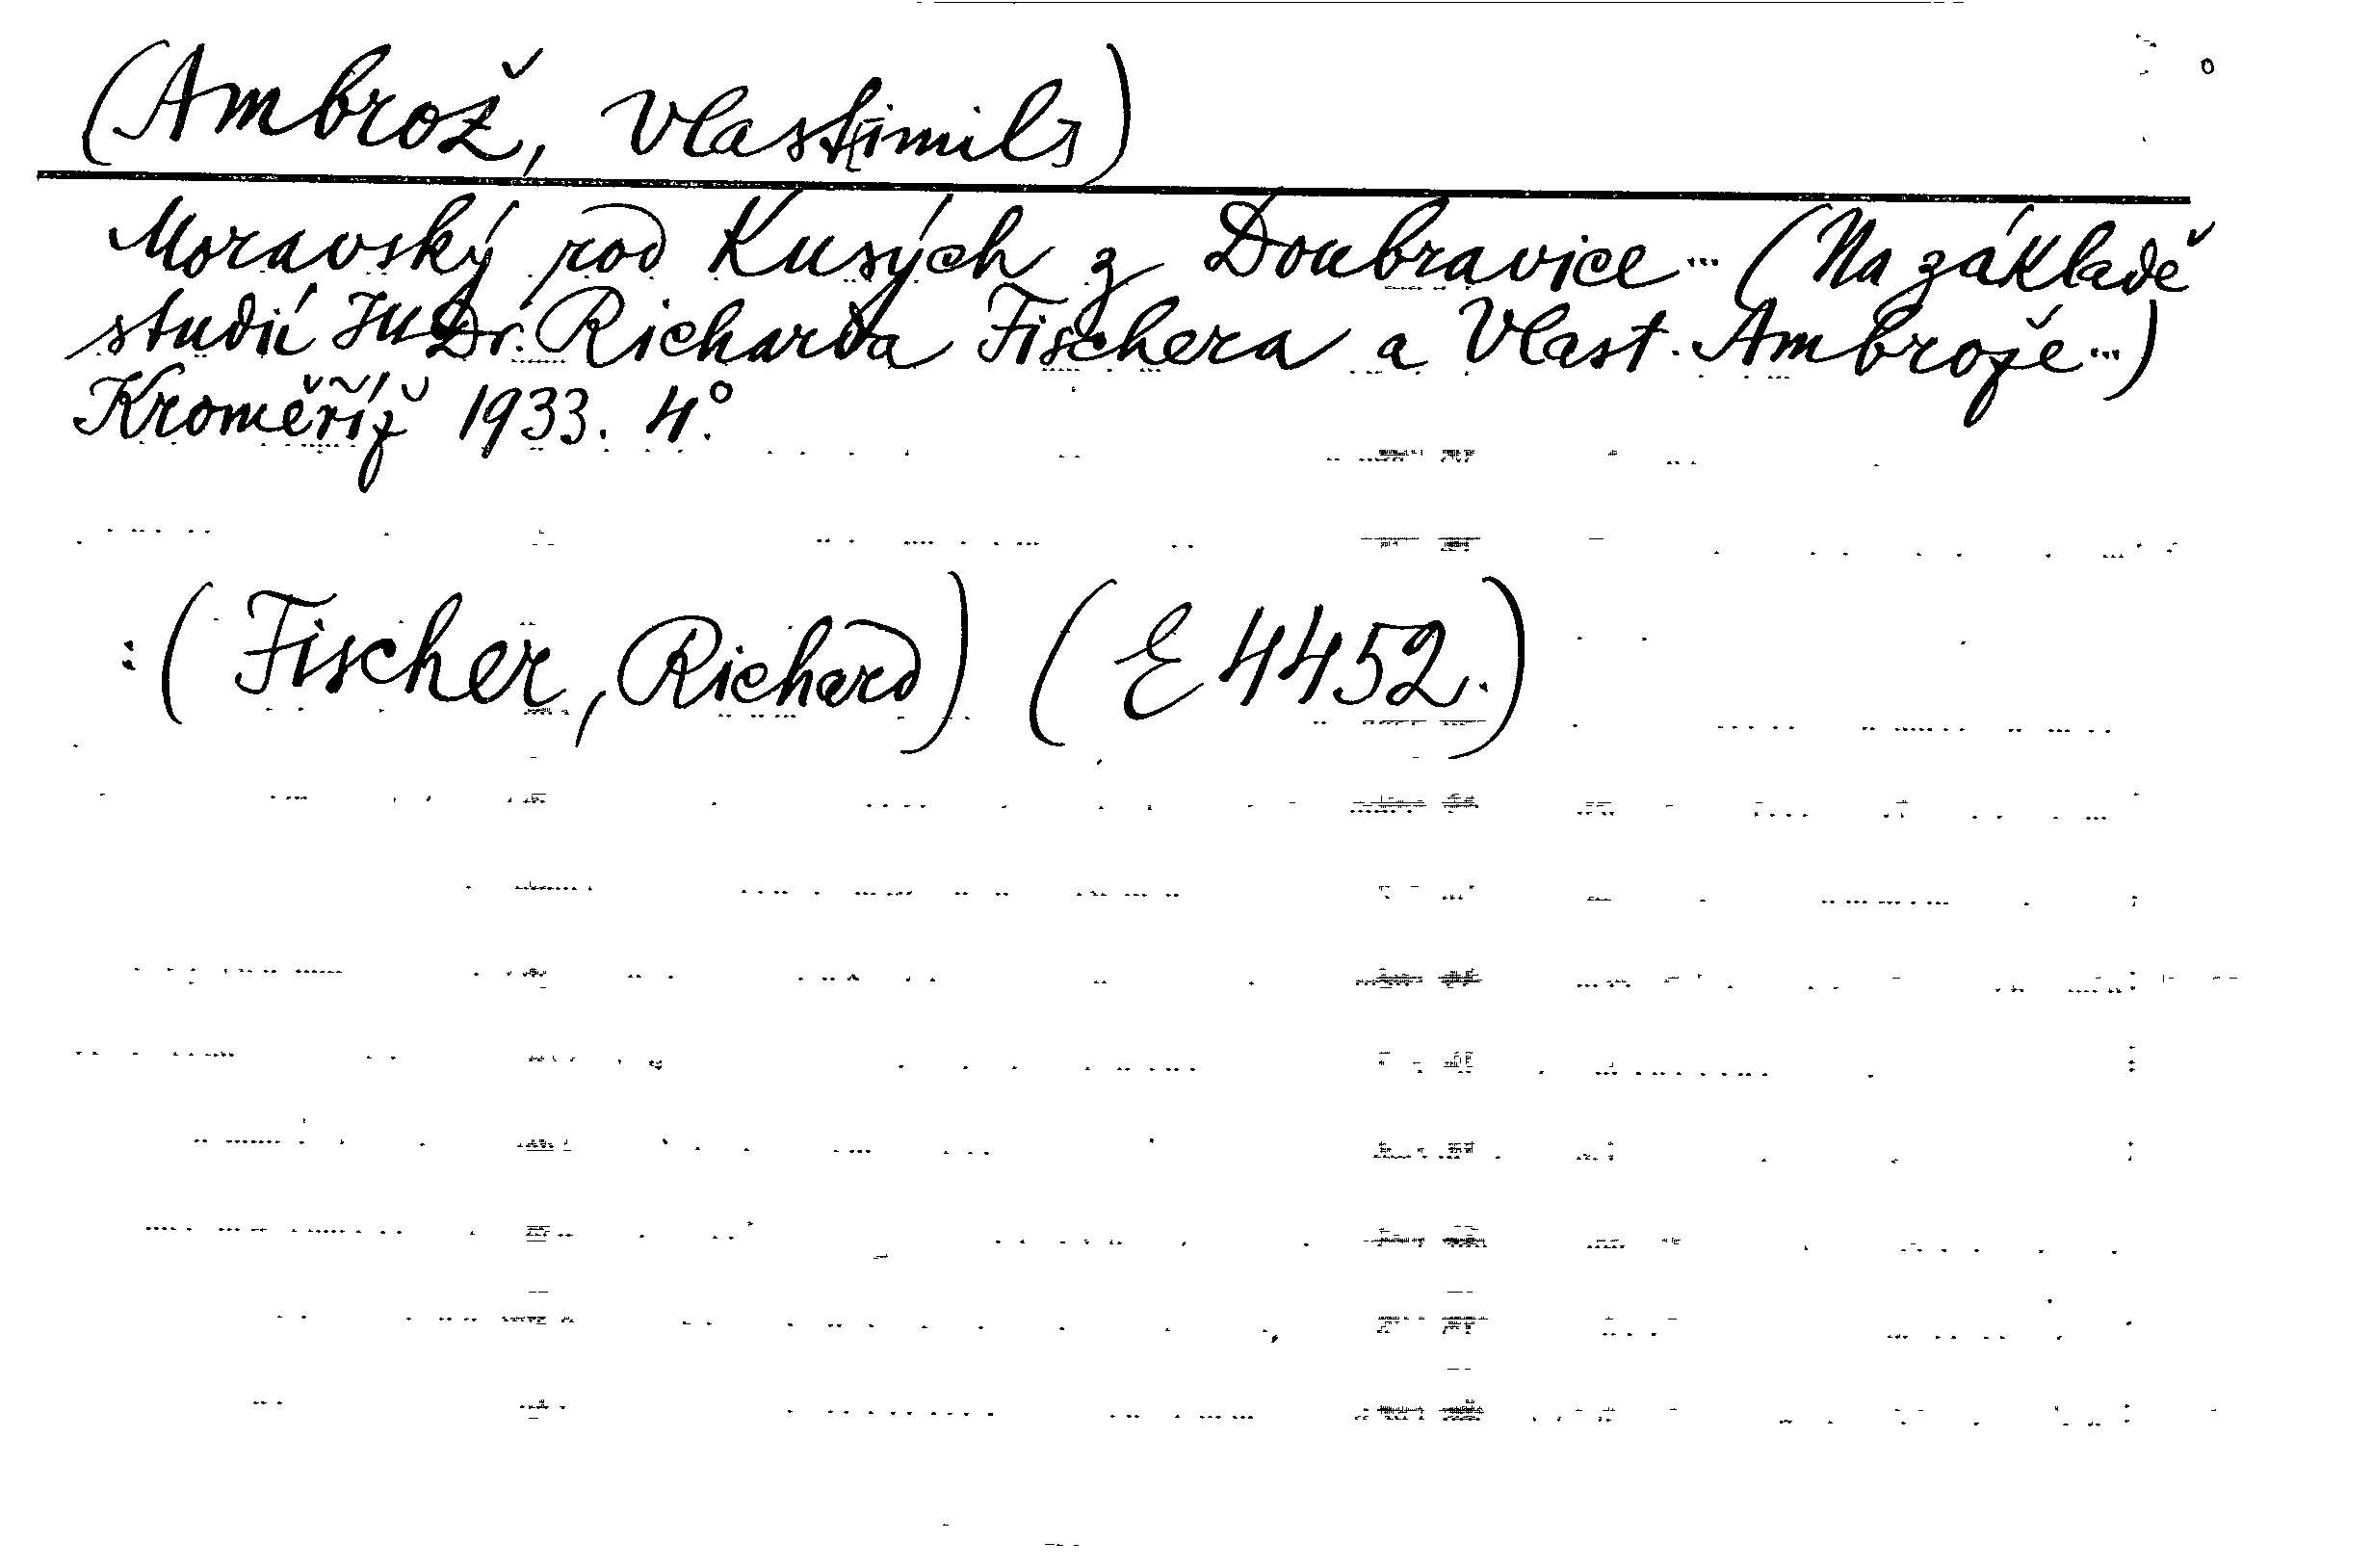 (Ambrož, Vlast[imil])
Moravský rod Kusých z Doubravice... (Na základě
studií JUDr. Richarda Fischera a Vlast. Ambrože...)
Kroměříž 1933. 4°.
:(Fischer, Richard) (E 4452.)